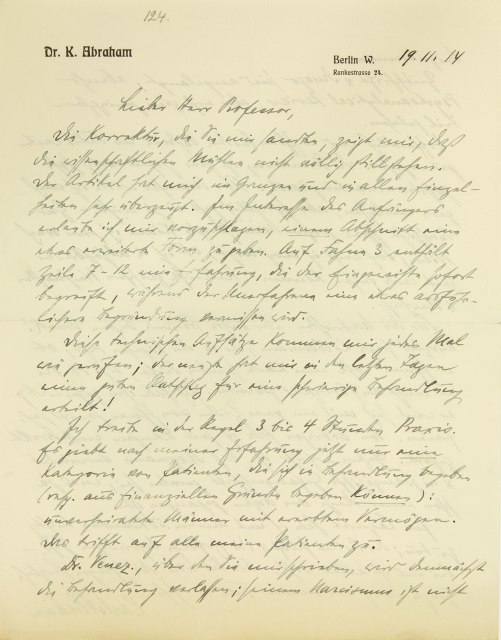 124.
Dr. K. Abraham
Berlin W. 19.11.14
Rankestrasse 24.
Lieber Herr Professor,
Die Korrektur, die Sie mir sandten, zeigt mir, daß
die wissenschaftlichen Mühlen nicht völlig stillstehen.
Der Artikel hat mich im Ganzen und in allen Einzel-
heiten sehr überzeugt. Im Interesse des Anfängers
erlaube ich mir vorzuschlagen, einem Abschnitt eine
etwas erweiterte Form zu geben. Auf Fahne 3 enthält
Zeile 7-12 eine Erfahrung, die der Eingeweihte sofort
begreift, während der Unerfahrene eine etwas ausführ-
lichere Begründung vermissen wird.
Diese technischen Aufsätze kommen mir jedes Mal
wie gerufen; der neueste hat mir in den letzten Tagen
einen guten Ratschlag für eine schwierige Behandlung
erteilt!
Ich treibe in der Regel 3 bis 4 Stunden Praxis.
Es giebt nach meiner Erfahrung jetzt nur eine
Kategorie von Patienten, die sich in Behandlung begeben
(resp. aus finanziellen Gründen begeben können):
unverheiratete Männer mit ererbtem Vermögen.
Das trifft auf alle meine Patienten zu.
Dr. , über den Sie mir schrieben, wird demnächst
die Behandlung verlassen; seinem Narcismus ist nicht